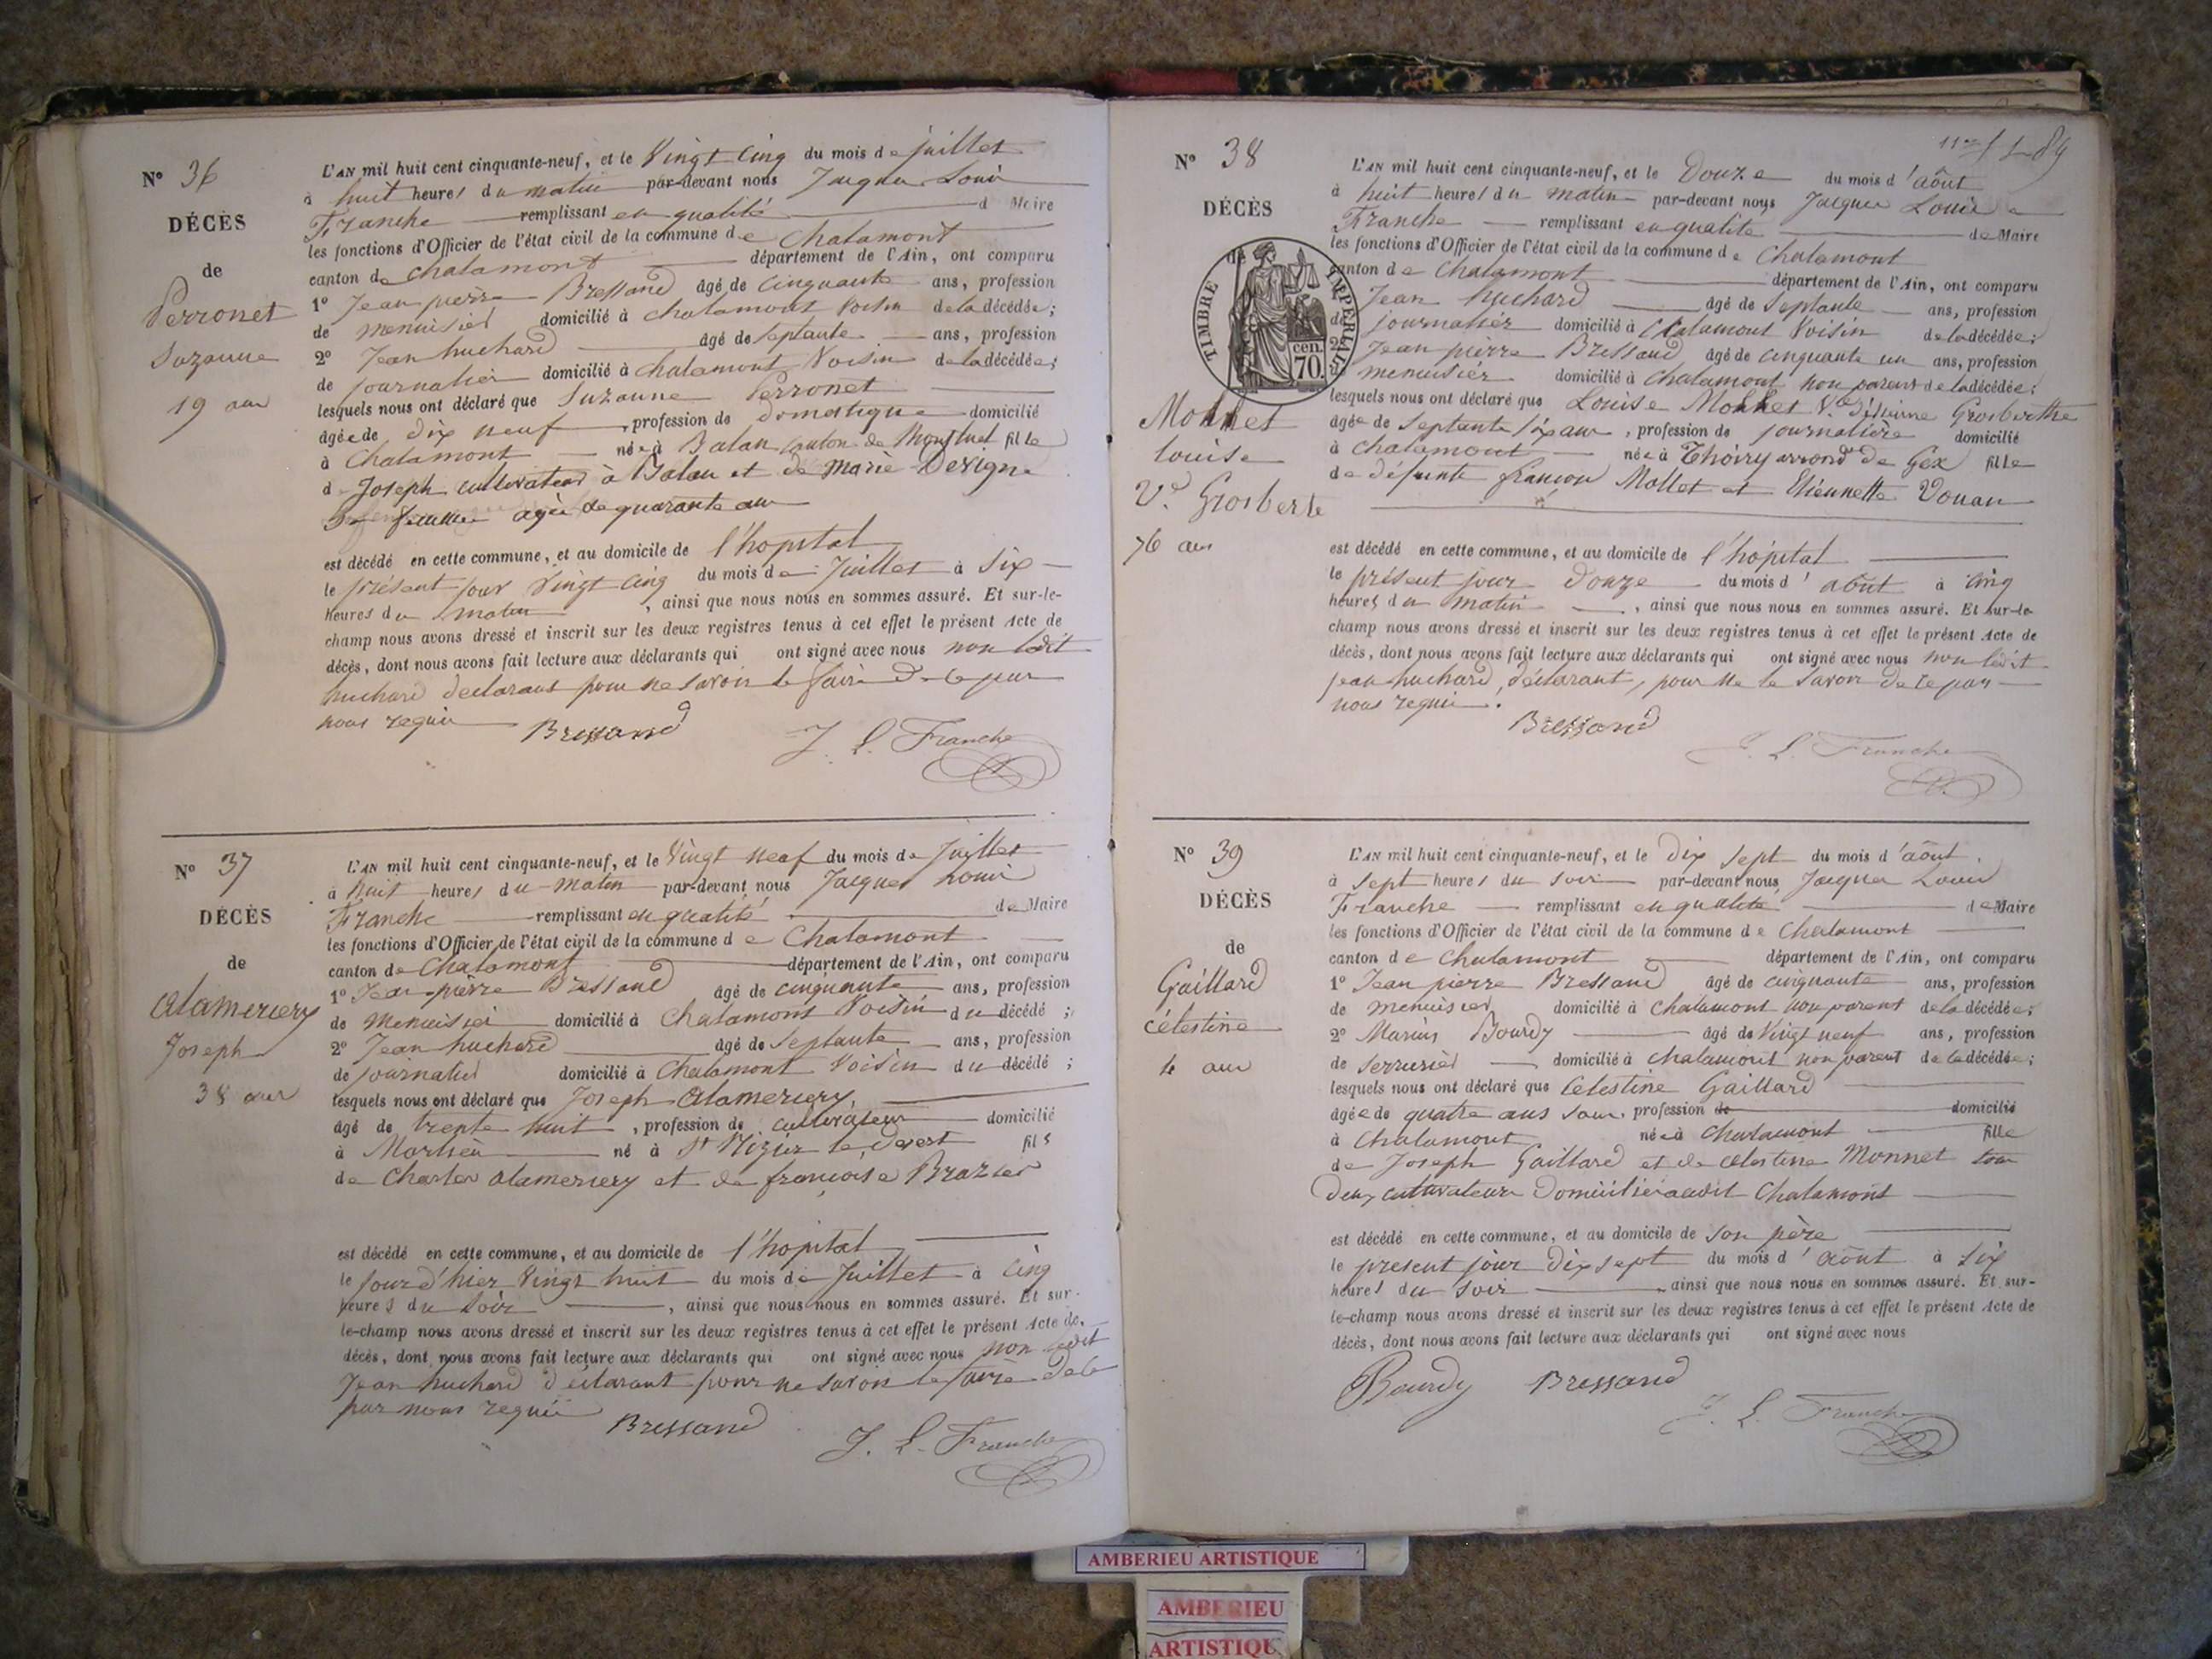 N° 36
DÉCÈS
de
Perronet
Suzanne
19 ans
L'AN mil huit cent cinquante-neuf, et le Vingt Cinq du mois de juillet
à huit heures du matin par-devant nous Jacques Louis
Franche remplissant en qualité d Maire
les fonctions d'Officier de l'état civil de la commune de Chalamont
canton de Chalamont département de l'Ain, ont comparu
1° Jean pierre Bressand âgé de Cinquante ans, profession
de menuisier domicilié à Chalamont Voisin de la décédée;
2° Jean huchard âgé de septante ans, profession
de journalier domicilié à Chalamont Voisin de la décédée;
lesquels nous ont déclaré que Suzanne Perronet
âgée de dix neuf, profession de domestique domicilié
à Chalamont née à Balan Canton de Montluel fille
de Joseph cultivateur à Balan et de Marie Devigne
femme agée de quarante ans
est décédé en cette commune, et au domicile de l'hopital
le présent jour Vingt Cinq du mois de Juillet à Six
heures du matin, ainsi que nous nous en sommes assuré. Et sur-le-
champ nous avons dressé et inscrit sur les deux registres tenus à cet effet le présent Acte de
décès, dont nous avons fait lecture aux déclarants qui ont signé avec nous non ledit
huchard déclarant pour ne savoir le faire de ce par
nous requis
Bressand J. L. Franche
N° 37
DÉCÈS
de
Alamercery
Joseph
38 ans
L'AN mil huit cent cinquante-neuf, et le Vingt neuf du mois de Juillet
à huit heures du matin par-devant nous Jacques Louis
Franche remplissant en qualité de Maire
les fonctions d'Officier de l'état civil de la commune de Chalamont
canton de Chalamont département de l'Ain, ont comparu
1° Jean pierre Bressand âgé de cinquante ans, profession
de menuisier domicilié à Chalamont Voisin du décédé;
2° Jean huchard âgé de septante ans, profession
de journalier domicilié à Chalamont Voisin du décédé;
lesquels nous ont déclaré que Joseph Alamercery,
âgé de trente huit, profession de cultivateur domicilié
à Marlieu né à St Nizier le desert fils
de Charles alamercery et de françoise Brazier
est décédé en cette commune, et au domicile de l'hopital
le jour d'hier Vingt huit du mois de Juillet à cinq
heures du Soir, ainsi que nous nous en sommes assuré. Et sur-
le-champ nous avons dressé et inscrit sur les deux registres tenus à cet effet le présent Acte de
décès, dont nous avons fait lecture aux déclarants qui ont signé avec nous non ledit
Jean huchard déclarant pour ne savoir le faire de ce
par nous requis
Bressand J. L. Franche
89
N° 38
DÉCÈS
de
TIMBRE IMPERIAL
cen.
70.
Monnet
Louise
Ve Grosberte
76 ans
L'AN mil huit cent cinquante-neuf, et le Douze du mois d'août
à huit heures du matin par-devant nous Jacques Louis
Franche remplissant en qualité de Maire
les fonctions d'Officier de l'état civil de la commune de Chalamont
canton de Chalamont département de l'Ain, ont comparu
Jean huchard âgé de septante ans, profession
de journalier domicilié à Chalamont Voisin de la décédée;
2° Jean pierre Bressand âgé de cinquante un ans, profession
menuisier domicilié à Chalamont non parent de la décédée;
lesquels nous ont déclaré que Louise Monnet Ve Grosberthe
âgée de septante six ans, profession de journalière domicilié
à Chalamont née à Thoiry arrond de Gex fille
de défunts françois Mollet et Etiennette Vouan
est décédé en cette commune, et au domicile de l'hôpital
le présent jour douze du mois d'août à cinq
heures du matin, ainsi que nous nous en sommes assuré. Et sur-le-
champ nous avons dressé et inscrit sur les deux registres tenus à cet effet le présent Acte de
décès, dont nous avons fait lecture aux déclarants qui ont signé avec nous non ledit
jean huchard, déclarant, pour ne le savoir de ce par
nous requis.
Bressand
J. L. Franche
N° 39
DÉCÈS
de
Gaillard
Célestine
4 ans
L'AN mil huit cent cinquante-neuf, et le dix sept du mois d'août
à sept heures du soir par-devant nous Jacques Louis
Franche remplissant en qualité de Maire
les fonctions d'Officier de l'état civil de la commune de Chalamont
canton de Chalamont département de l'Ain, ont comparu
1° Jean pierre Bressand âgé de cinquante ans, profession
de menuisier domicilié à Chalamont non parent de la décédée;
2° Marius Bourdy âgé de Vingt neuf ans, profession
de serrurier domicilié à Chalamont non parent de la décédée;
lesquels nous ont déclaré que Célestine Gaillard
âgée de quatre ans sans profession de domicilié
à Chalamont née à Chalamont fille
de Joseph Gaillard et de Célestine Monnet tous
deux cultivateurs domiciliés audit Chalamont
est décédé en cette commune, et au domicile de son père
le présent jour dix sept du mois d'août à Six
heures du soir ainsi que nous nous en sommes assuré. Et sur-
le-champ nous avons dressé et inscrit sur les deux registres tenus à cet effet le présent Acte de
décès, dont nous avons fait lecture aux déclarants qui ont signé avec nous
Bourdy Bressand
J. L. Franche
AMBERIEU ARTISTIQUE
AMBERIEU
ARTISTIQUE